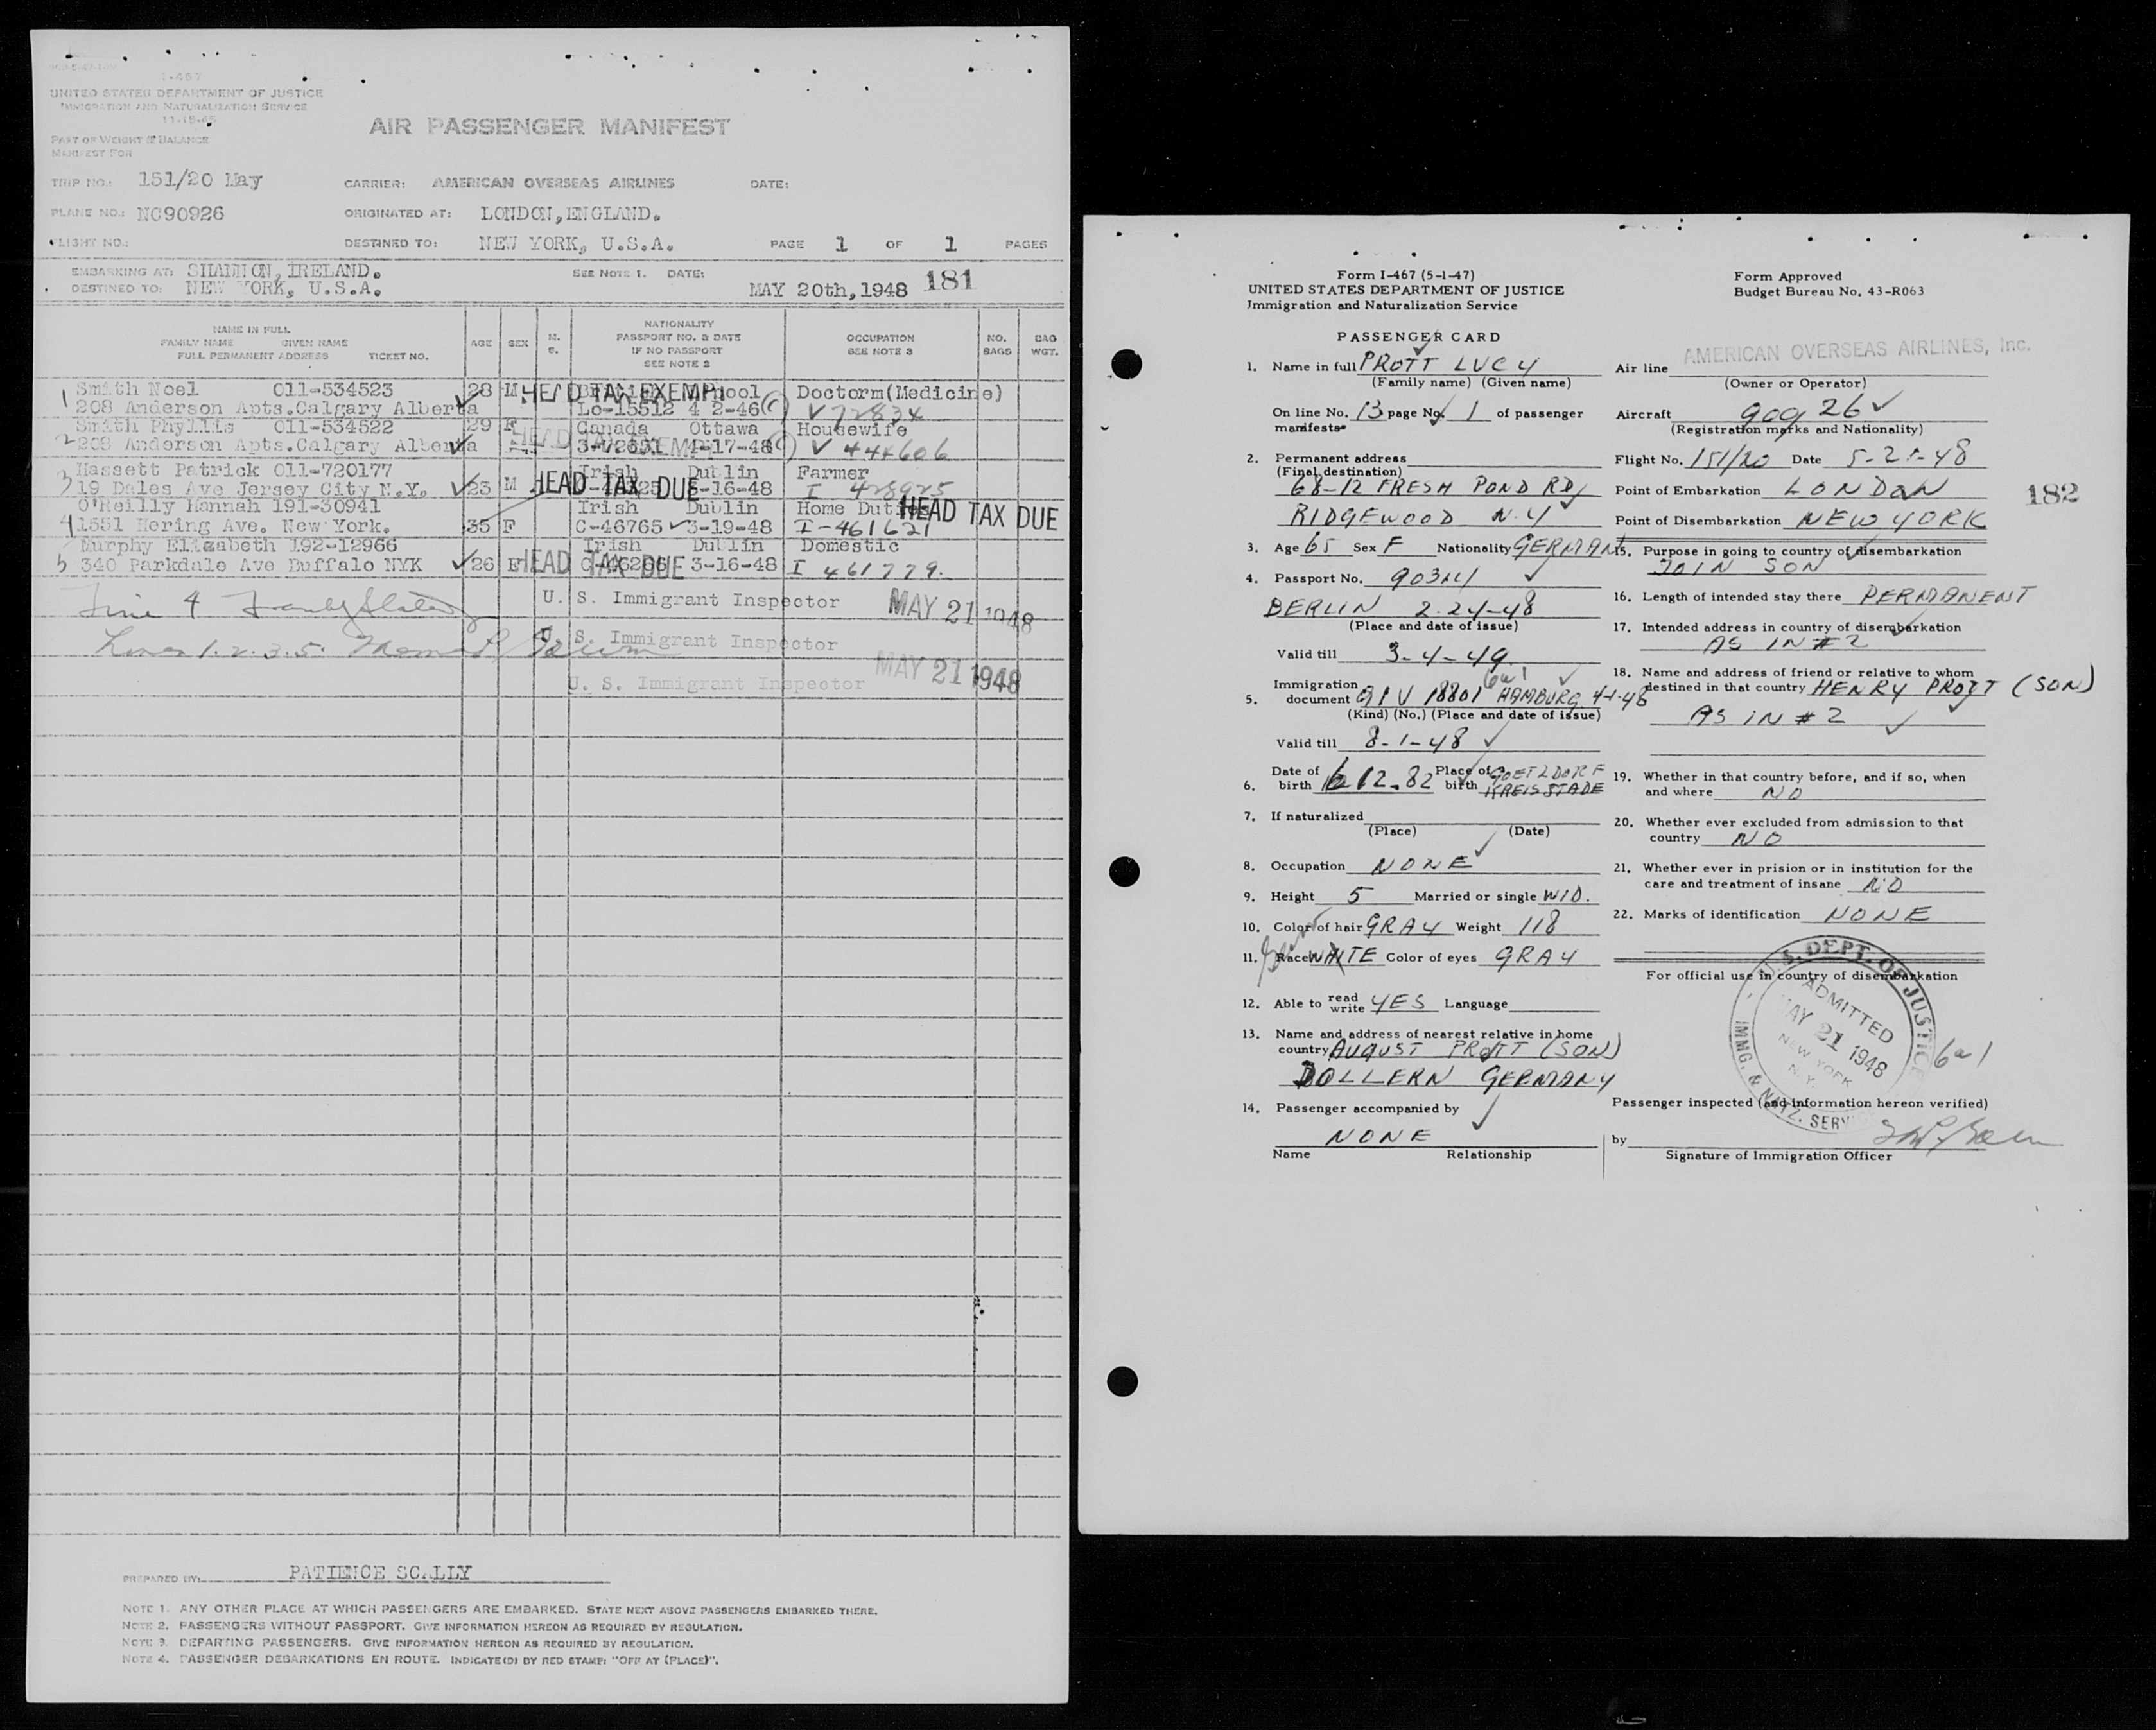 I-467
UNITED STATES DEPARTMENT OF JUSTICE
IMMIGRATION AND NATURALIZATION SERVICE
11-15-45
PART OF WEIGHT & BALANCE
MANIFEST FOR
AIR PASSENGER MANIFEST
TRIP NO.: 151/20 May CARRIER: AMERICAN OVERSEAS AIRLINES DATE:
PLANE NO.: NC90926 ORIGINATED AT: LONDON,ENGLAND.
FLIGHT NO.: DESTINED TO: NEW YORK, U.S.A. PAGE 1 OF 1 PAGES
EMBARKING AT: SHANNON, IRELAND. SEE NOTE 1. DATE:
DESTINED TO: NEW YORK, U.S.A. MAY 20th,1948 181
NAME IN FULL
FAMILY NAME GIVEN NAME
FULL PERMANENT ADDRESS TICKET NO.
AGE SEX M. S.
NATIONALITY
PASSPORT NO. & DATE
IF NO PASSPORT
SEE NOTE 2
OCCUPATION
SEE NOTE 3
NO. BAGS
BAG WGT.
1 Smith Noel 011-534523 28 M HEAD TAX EXEMPT Doctorm(Medicine)
208 Anderson Apts.Calgary Alberta Lo-15512 4 2-46 (C) V 72834
2 Smith Phyllis 011-534522 29 F Canada Ottawa Housewife
208 Anderson Apts.Calgary Alberta HEAD TAX EXEMPT 4-17-48 (C) V 444606
3 Hassett Patrick 011-720177 Irish Dublin Farmer
19 Dales Ave Jersey City N.Y. 23 M HEAD TAX DUE 3-16-48 I 428925
4 O'Reilly Hannah 191-30941 Irish Dublin Home Duties HEAD TAX DUE
1551 Hering Ave. New York. 35 F C-46765 3-19-48 I-461621
5 Murphy Elizabeth 192-12966 Irish Dublin Domestic
340 Parkdale Ave Buffalo NYK 26 F HEAD TAX DUE 3-16-48 I 461779.
Line 4 U. S. Immigrant Inspector MAY 21 1948
Lines 1. 2. 3. 5. U. S. Immigrant Inspector
U. S. Immigrant Inspector MAY 21 1948
PREPARED BY: PATIENCE SCALLY
NOTE 1. ANY OTHER PLACE AT WHICH PASSENGERS ARE EMBARKED. STATE NEXT ABOVE PASSENGERS EMBARKED THERE.
NOTE 2. PASSENGERS WITHOUT PASSPORT. GIVE INFORMATION HEREON AS REQUIRED BY REGULATION.
NOTE 3. DEPARTING PASSENGERS. GIVE INFORMATION HEREON AS REQUIRED BY REGULATION.
NOTE 4. PASSENGER DEBARKATIONS EN ROUTE. INDICATE(D) BY RED STAMP: "OFF AT (PLACE)".
Form I-467 (5-1-47)
UNITED STATES DEPARTMENT OF JUSTICE
Immigration and Naturalization Service
Form Approved
Budget Bureau No. 43-R063
PASSENGER CARD
1. Name in full PROTT LUCY
(Family name) (Given name)
On line No. 13 page No. 1 of passenger
manifests
2. Permanent address
(Final destination)
68-12 FRESH POND RD
RIDGEWOOD N.Y
3. Age 65 Sex F Nationality GERMAN
4. Passport No.
BERLIN 2-24-48
(Place and date of issue)
Valid till 3-4-49
5. Immigration 6a1
document QIV 18801 HAMBURG 4-1-48
(Kind) (No.) (Place and date of issue)
Valid till 8-1-48
6. Date of birth 12-82 Place of birth GOETZDORF
KREIS STADE
7. If naturalized
(Place) (Date)
8. Occupation NONE
9. Height 5 Married or single WID.
10. Color of hair GRAY Weight 118
11. Race WHITE Color of eyes GRAY
12. Able to read write YES Language
13. Name and address of nearest relative in home
country AUGUST PROTT (SON)
DOLLERN GERMANY
14. Passenger accompanied by
NONE
Name Relationship
Air line AMERICAN OVERSEAS AIRLINES, Inc.
(Owner or Operator)
Aircraft 90926
(Registration marks and Nationality)
Flight No. 151/20 Date 5-21-48
Point of Embarkation LONDON 182
Point of Disembarkation NEW YORK
15. Purpose in going to country of disembarkation
JOIN SON
16. Length of intended stay there PERMANENT
17. Intended address in country of disembarkation
AS IN #2
18. Name and address of friend or relative to whom
destined in that country HENRY PROTT (SON)
AS IN #2
19. Whether in that country before, and if so, when
and where NO
20. Whether ever excluded from admission to that
country NO
21. Whether ever in prision or in institution for the
care and treatment of insane NO
22. Marks of identification NONE
For official use in country of disembarkation
U.S. DEPT. OF JUSTICE
ADMITTED
MAY 21 1948
NEW YORK
N.Y.
IMMG. & NATZ. SERV
6a1
Passenger inspected (and information hereon verified)
by
Signature of Immigration Officer